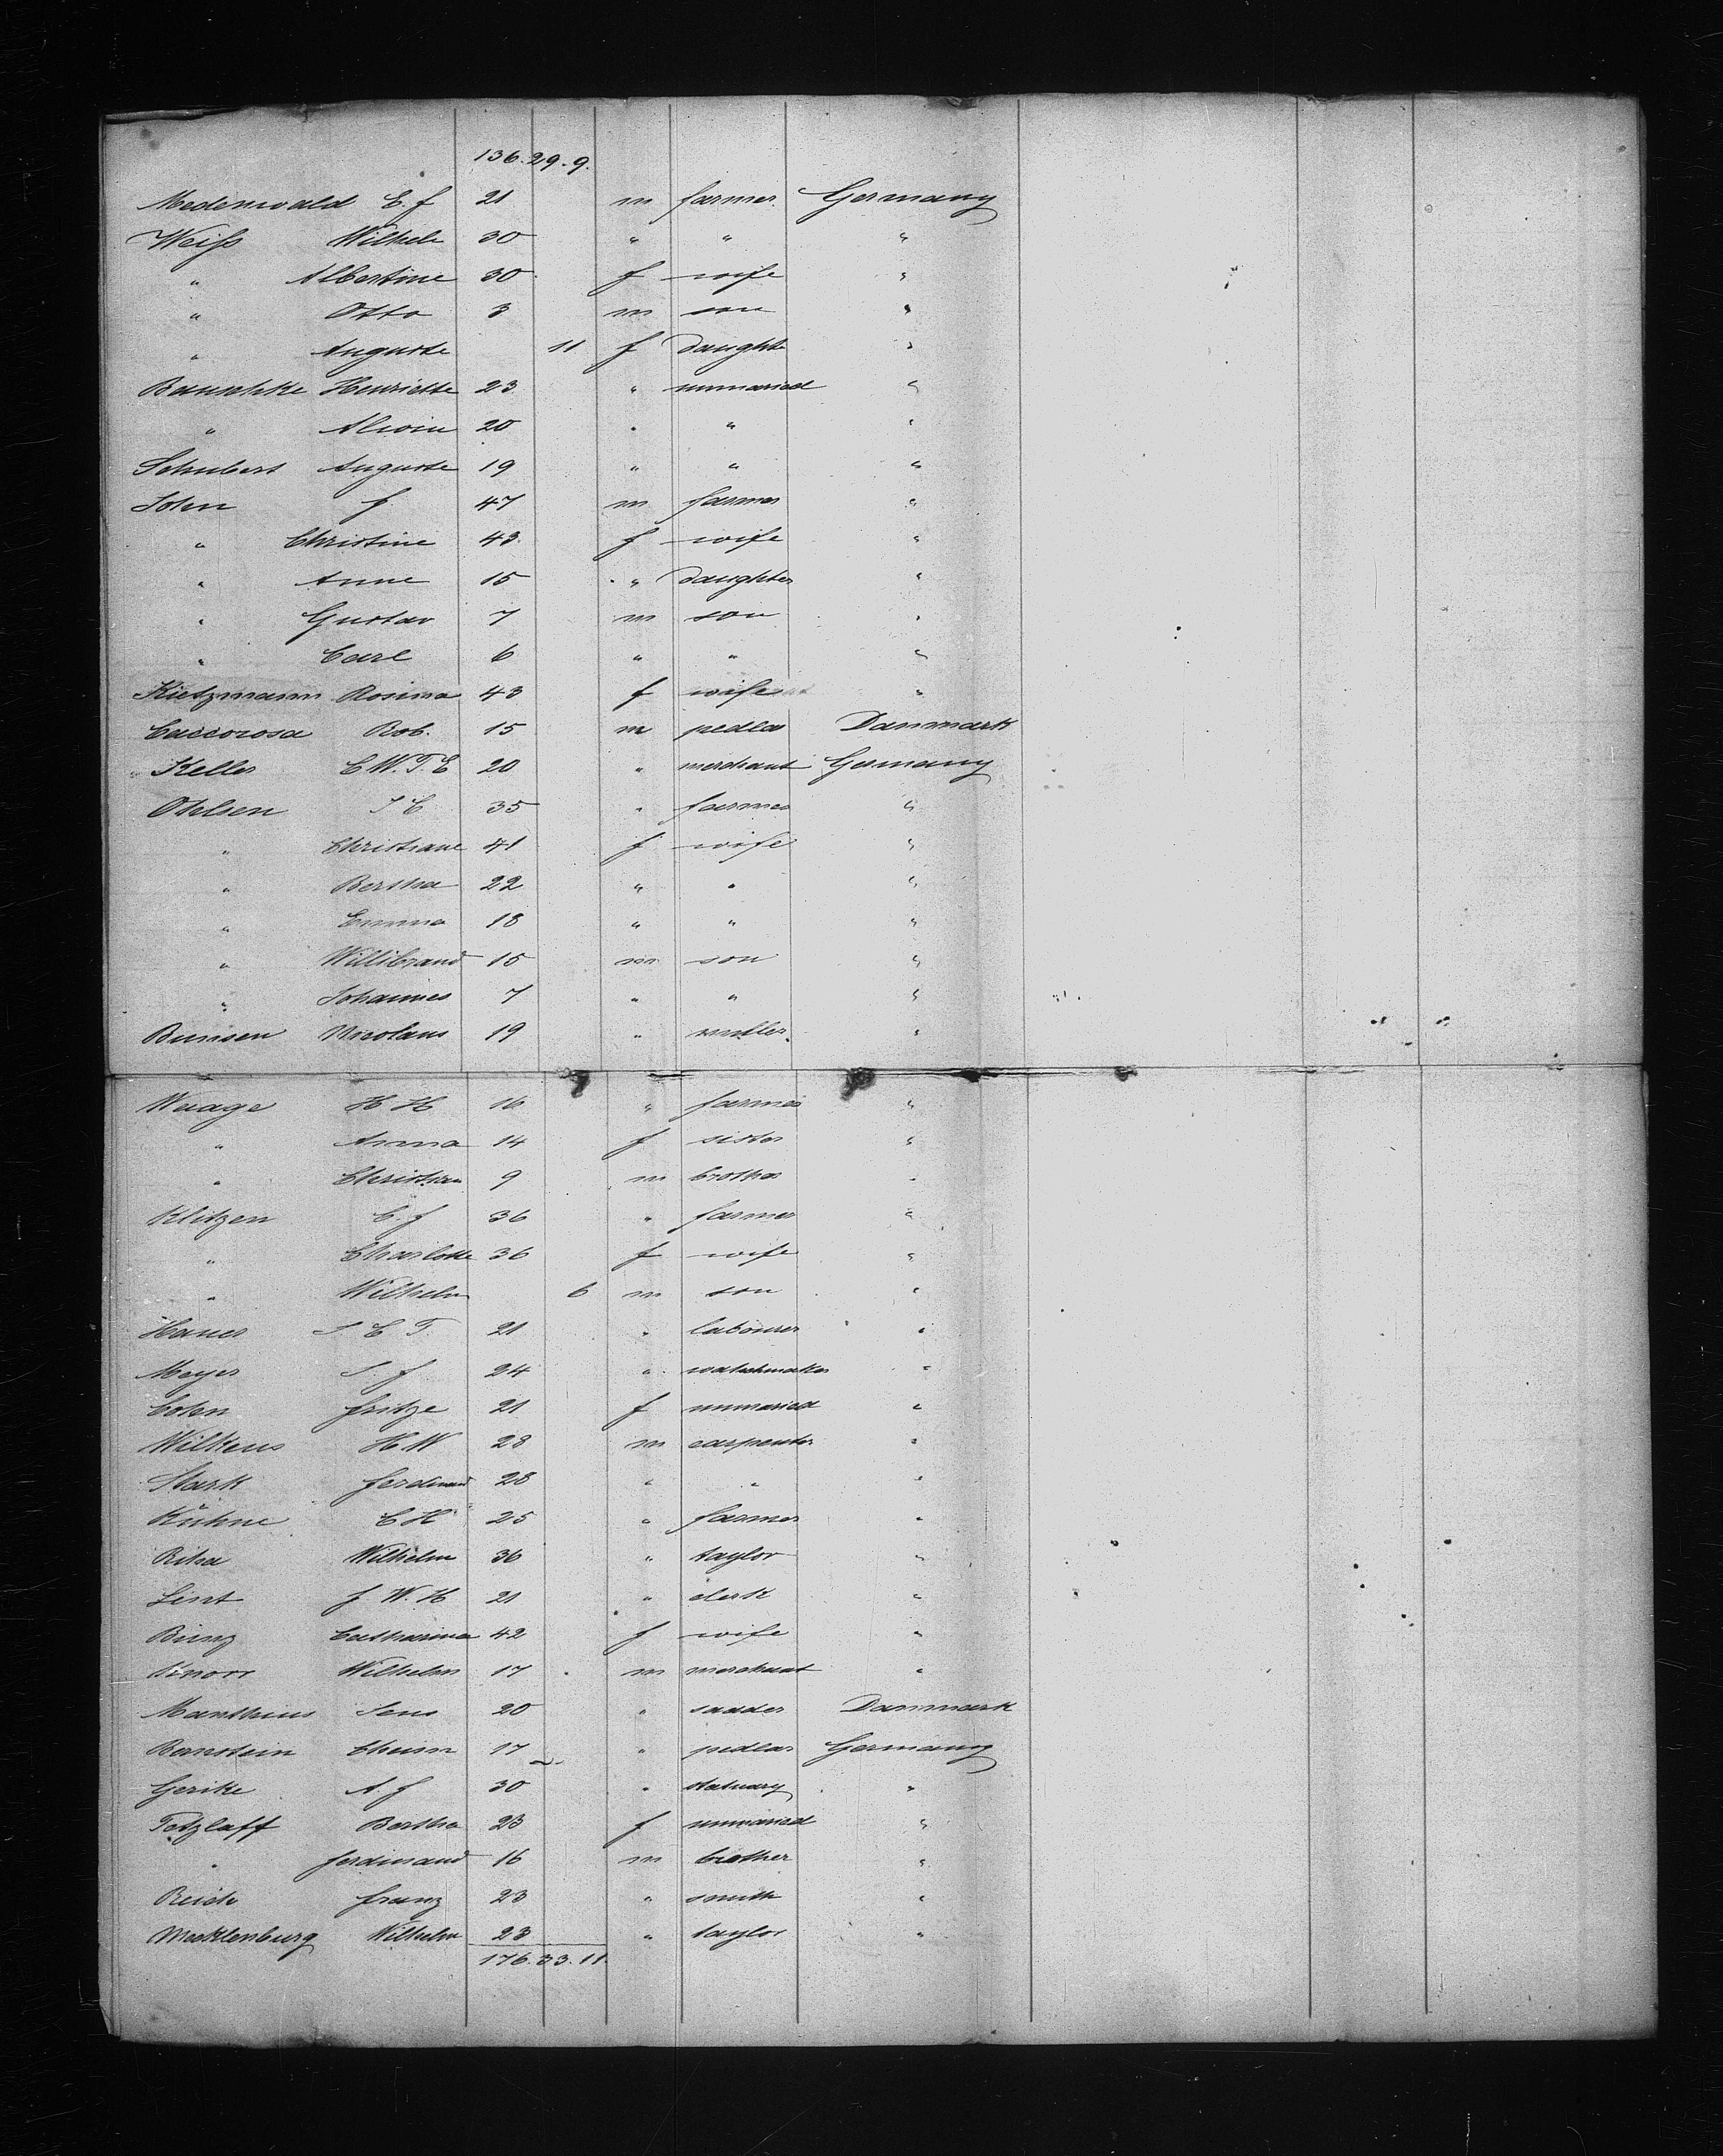 136. 29. 9.
Medenwald C. f 21 m farmer Germany
Weiss Wilhelm 30 " " "
" Albertine 30 f wife "
" Otto 3 m son "
" Auguste 11 f daughte "
Banschke Henriette 23 " unmaried "
" Alwin 20 " " "
Schubert Auguste 19 " " "
John f 47 m farmer "
" Christine 43 f wife "
" Anne 15 " daughter "
" Gustav 7 m son "
" Carl 6 " " "
Kietzmann Rosina 43 f wife "
Caccorosa Rob. 15 m pedlar Danmark
Keller C W. T. E 20 " merchant Germany
Ohlsen J C 35 " farmer "
" Christiane 41 f wife "
" Bertha 22 " " "
" Emma 18 " " "
" Willibrand 15 m son "
" Johannes 7 " " "
Bunsen Nicolaus 19 " miller "
Waage H H 16 " farmer "
" Anna 14 f sister "
" Christian 9 m brother "
Klitzen C. f 36 " farmer "
" Charlotte 36 f wife "
" Wilhelm 6 m son "
Hauer J C T 21 " labourer "
Meyer J. f 24 " watchmaker "
Cohn fritze 21 f unmaried "
Wilkens H W 28 m carpenter "
Stark ferdinand 28 " " "
Kühne C H 25 " farmer "
Riha Wilhelm 36 " taylor "
Lint f W. H 21 " clerk "
Bünz Catharina 42 f wife "
Knorr Wilhelm 17 m merchant "
Manthius Jens 20 " sadder Danmark
Bernstein Chaim 17 " pedlar Germany
Gerike A. f 30 " statuary "
Tetzlaff Bertha 23 f unmaried "
" ferdinand 16 m brother "
Reich franz 23 " smith "
Mecklenburg Wilhelm 23 " taylor "
176. 33. 11.